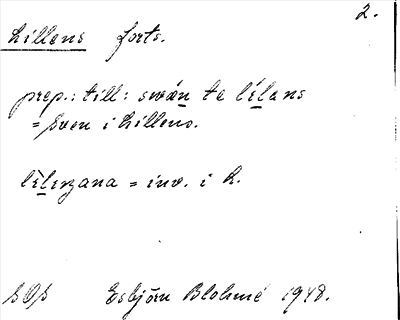 2.
Lillens forts.
prep.: till: swán te lílans
= Sven i Lillens.
lìlenzana = inv. i L.
SOS Esbjörn Blohmé 1948.